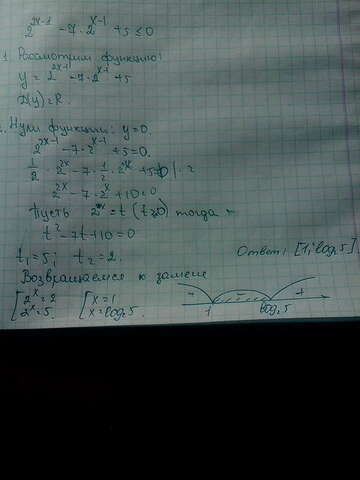 2^{2x-1} - 7·2^{x-1} + 5 ≤ 0
1. Рассмотрим функцию:
y = 2^{2x-1} - 7·2^{x-1} + 5
D(y) = R.
Нули функции: y=0.
2^{2x-1} - 7·2^{x-1} + 5 = 0.
1/2 · 2^{2x} - 7 · 1/2 · 2^x + 5 = 0 | · 2
2^{2x} - 7·2^x + 10 = 0
Пусть 2^x = t (t>0) тогда
t² - 7t + 10 = 0
t₁ = 5; t₂ = 2.
Ответ: [1; log₂5].
Возвращаемся к замене
[ 2^x = 2 [ x = 1
2^x = 5. x = log₂5.
+ - +
1 log₂5